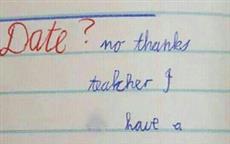 Date? no thanks
teakher I
have a